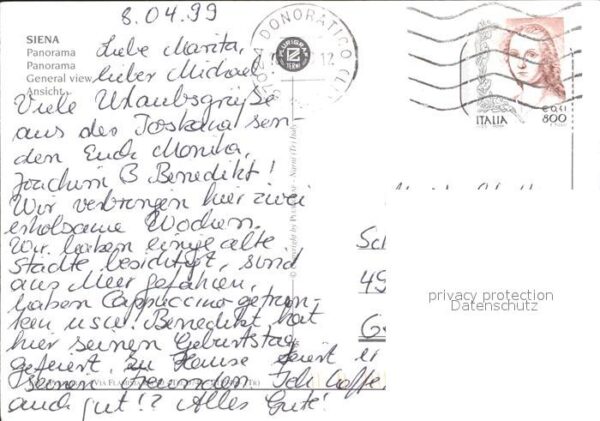 8.04.99
SIENA
Panorama
Panorama
General view
Ansicht
Liebe Marita,
lieber Michael
Viele Urlaubsgrüße
aus der Toskana sen-
den Euch Monika,
Joachim & Benedikt!
Wir verbringen hier zwei
erholsame Wochen.
Wir haben einige alte
Städte besichtigt, sind
aus Meer gefahren,
haben Cappuccino getrun-
ken usw. Benedikt hat
hier seinen Geburtstag
gefeiert. Zu Hause feiert er
seinen Freunden Ich hoffe
auch gut!? Alles Gute!
DONORATICO
12
PLURIGRAF
TERNI
ITALIA
800
Sch
49
G
privacy protection
Datenschutz